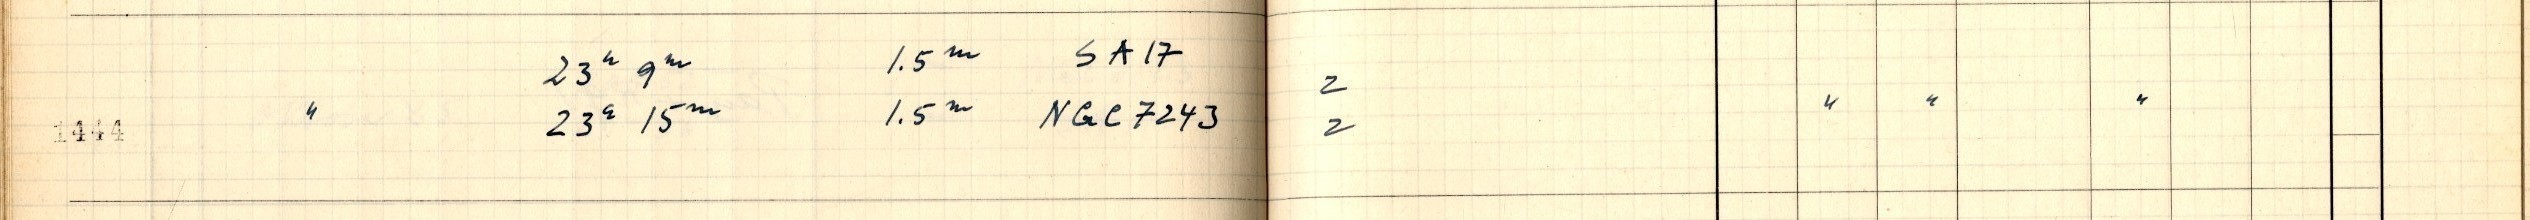 23ʰ 9ᵐ 1.5ᵐ SA17 2
1444 " 23ʰ 15ᵐ 1.5ᵐ NGC7243 2 " " "